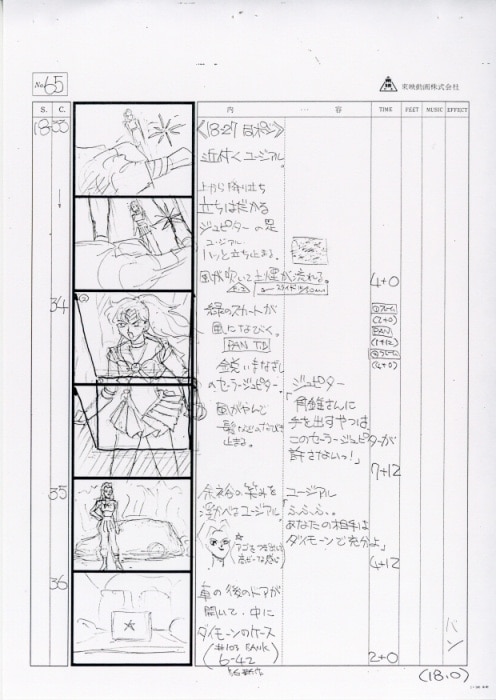 No.65
東映動画株式会社
S. C. 内 容 TIME FEET MUSIC EFFECT
18-33
《18-27
近付くユージアル。
上から降り立ち
立ちはだかる
ジュピターの足
ユージアル
ハッと立ち止まる。
風が吹いて土煙が流れる。
4+0
34
緑のスカートが
風になびく。
PAN
鋭いまなざし
のセーラージュピター。
風がやんで
止まる。
ジュピター
「角錐さんに
手を出すやつは
このセーラージュピターが
許さないっ！」
(2+0)
PAN
(1+12)
7+12
35
余裕の笑みを
浮かべるユージアル
ユージアル
「ふ、ふ、ふ、
あなたの相手は
ダイモーンで充分よ」
4+12
36
車の後のドアが
開いて、中に
ダイモーンのケース
(#103 BANK)
6-42
バン
2+0
(18.0)